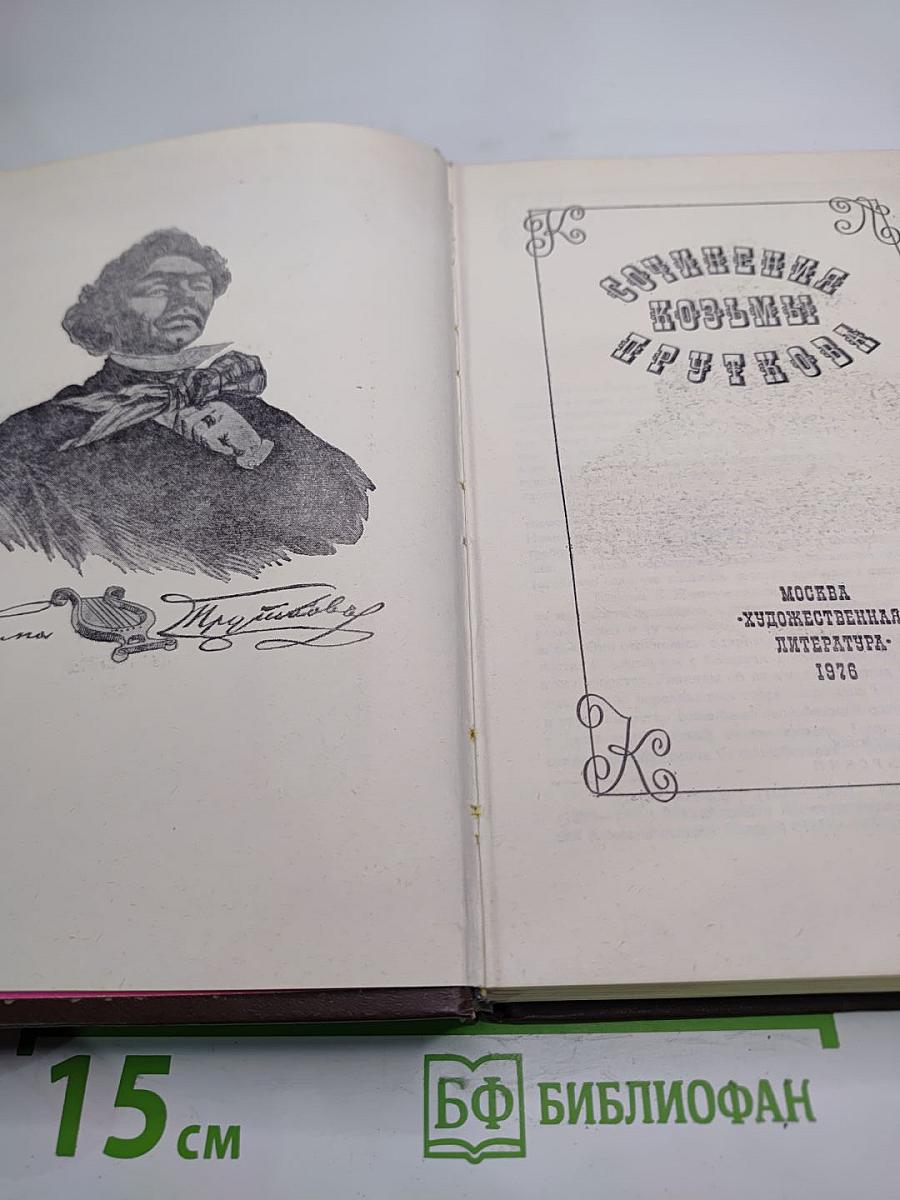 Пруткова
К
П
СОЧИНЕНИЯ
КОЗЬМЫ
ПРУТКОВА
МОСКВА
«ХУДОЖЕСТВЕННАЯ
ЛИТЕРАТУРА»
1976
К
15 см
БФ БИБЛИОФАН